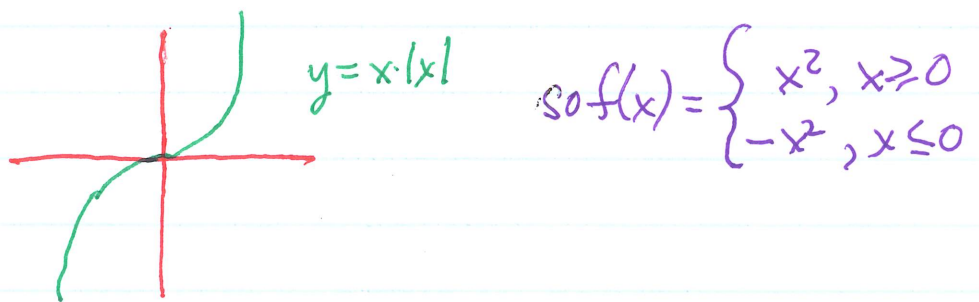 y = x·|x|
so f(x) = { x², x ≥ 0
-x², x ≤ 0